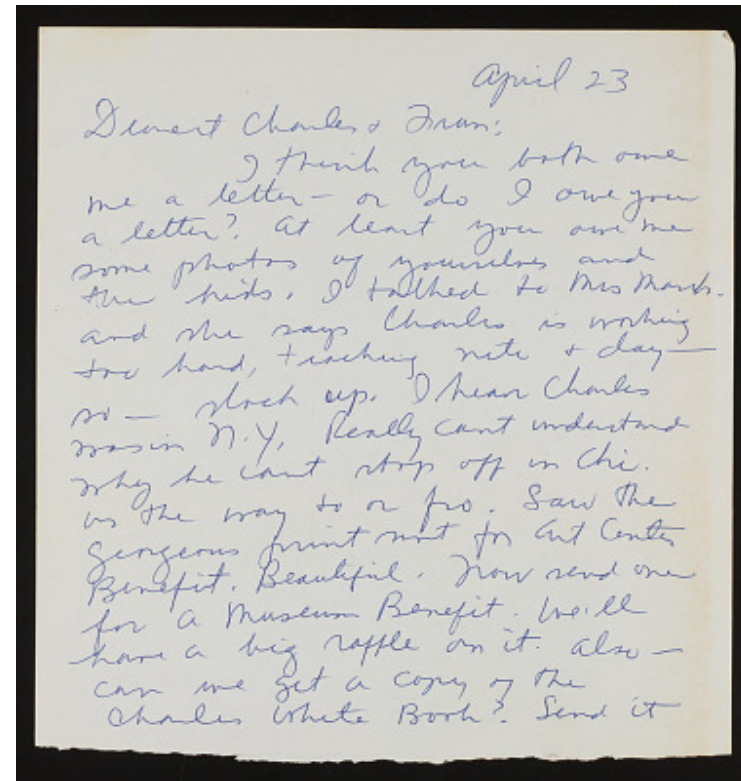 April 23
Dearest Charles & Fran:
I think you both owe
me a letter – or do I owe you
a letter? At least you owe me
some photos of yourselves and
the kids. I talked to Mrs Marsh.
and she says Charles is working
too hard, teaching nite & day —
so — slack up. I hear Charles
was in N.Y. Really cant understand
why he cant stop off in Chi.
on the way to or fro. Saw the
gorgeous print sent for Art Center
Benefit. Beautiful. Now send one
for a Museum Benefit. We'll
have a big raffle on it. Also —
can we get a copy of the
Charles White Book? Send it